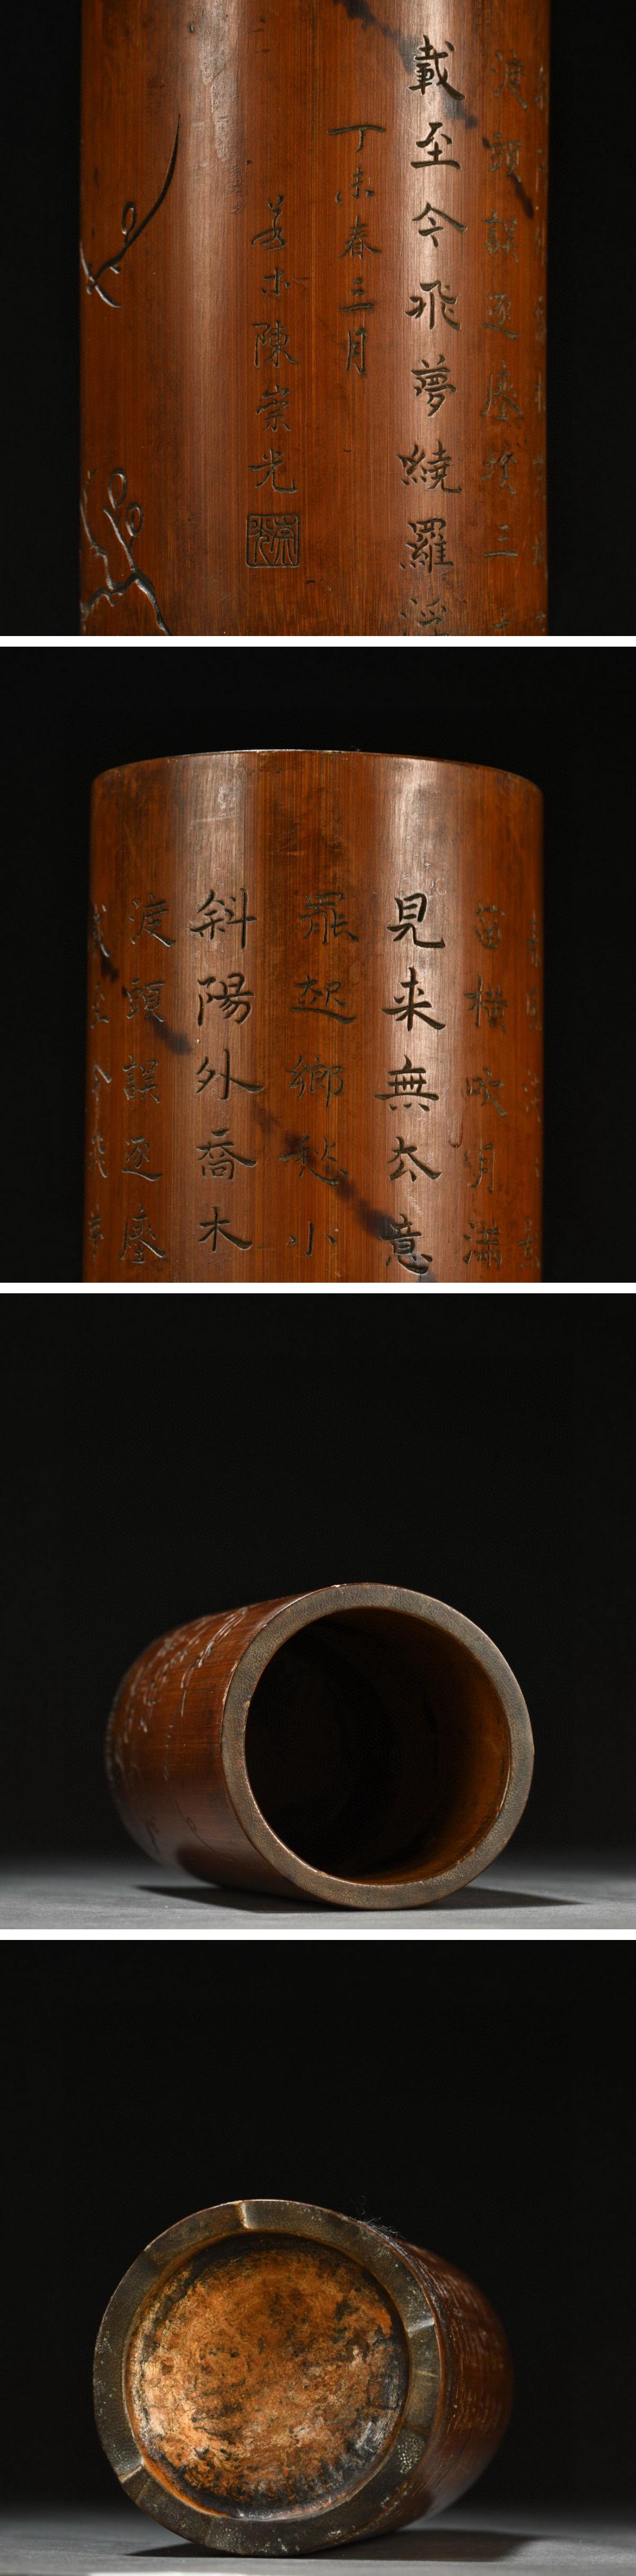 渡頭誤逐塵埃三十
載至今飛夢繞羅浮
丁未春三月
若木陳崇光
崇光
笛横吹月滿
見来無意
起鄉愁小
斜陽外喬木
渡頭誤逐塵